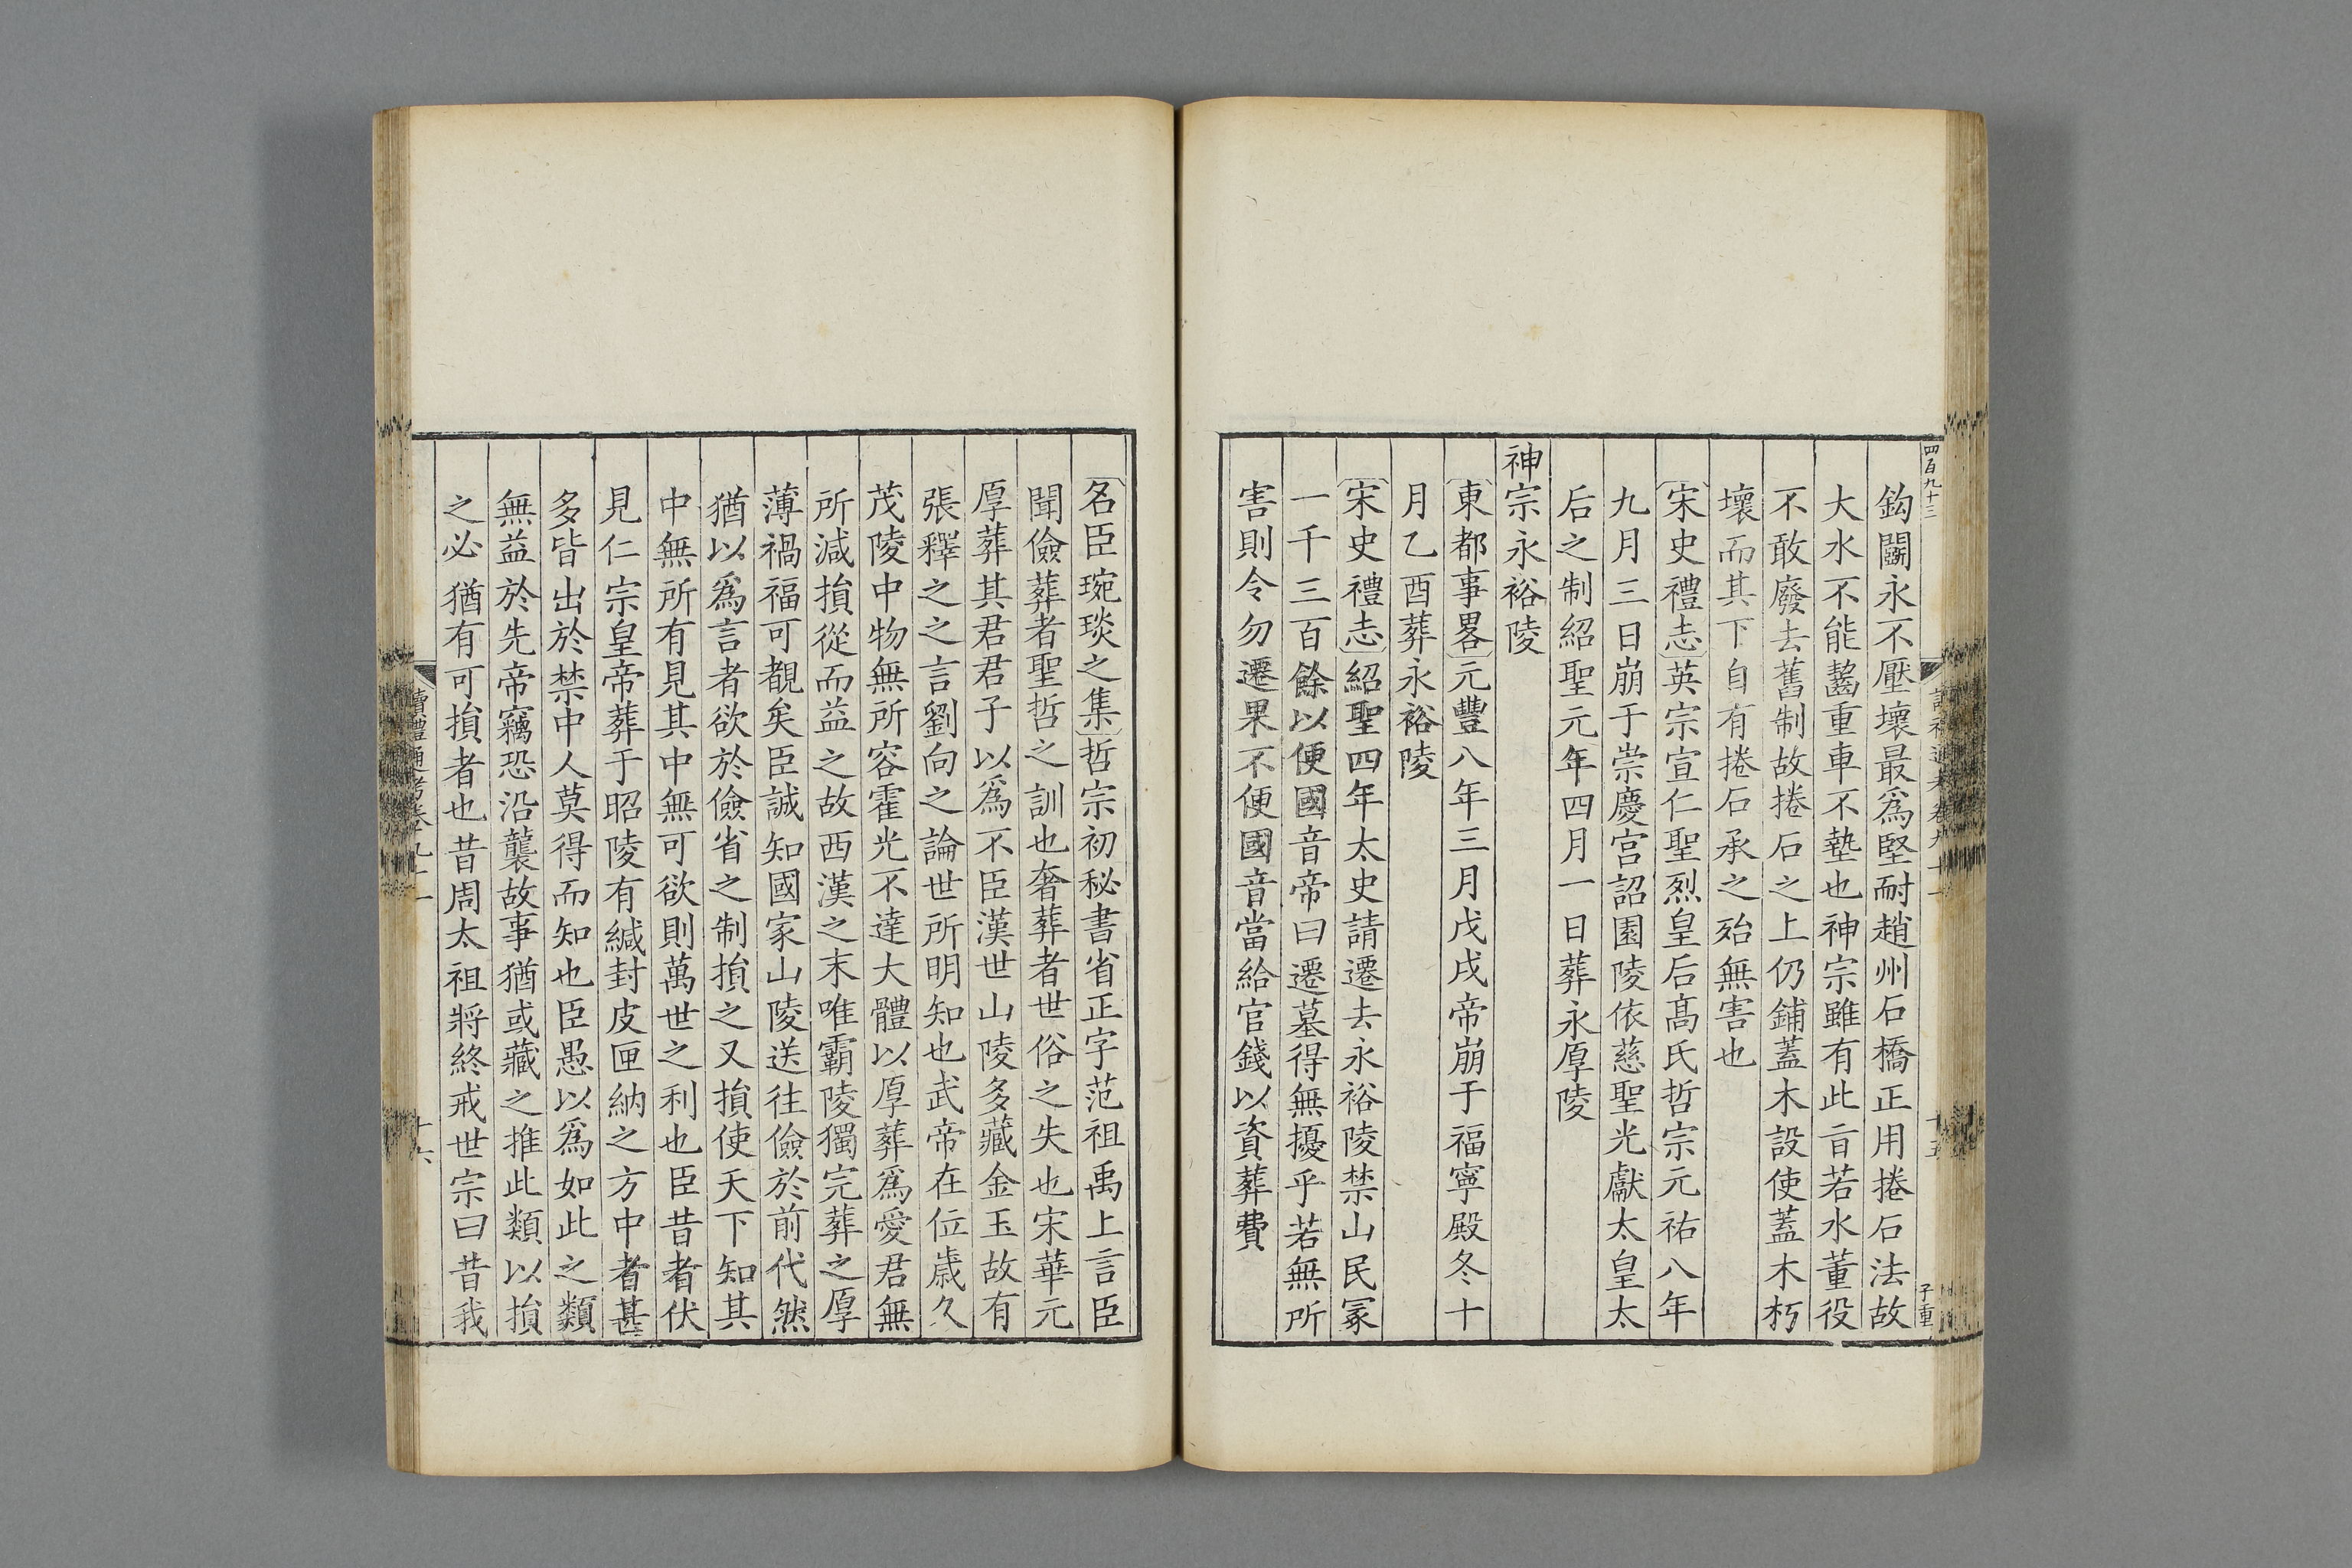 四百九十三
鈎鬭永不壓壞最爲堅耐趙州石橋正用捲石法故
大水不能齧重車不墊也神宗雖有此㫖若水董役
不敢廢去舊制故捲石之上仍鋪蓋木設使蓋木朽
壞而其下自有捲石承之殆無害也
宋史禮志英宗宣仁聖烈皇后髙氏哲宗元祐八年
九月三日崩于崇慶宫詔園陵依慈聖光獻太皇太
后之制紹聖元年四月一日葬永厚陵
神宗永裕陵
東都事畧元豐八年三月戊戌帝崩于福寧殿冬十
月乙酉葬永裕陵
宋史禮志紹聖四年太史請遷去永裕陵禁山民冡
一千三百餘以便國音帝曰遷墓得無擾乎若無所
害則令勿遷果不便國音當給官錢以資葬費
名臣琬琰之集哲宗初秘書省正字范祖禹上言臣
聞儉葬者聖哲之訓也奢葬者世俗之失也宋華元
厚葬其君君子以爲不臣漢世山陵多藏金玉故有
張釋之之言劉向之論世所明知也武帝在位歲久
茂陵中物無所容霍光不達大體以厚葬爲愛君無
所減損從而益之故西漢之末唯霸陵獨完葬之厚
薄禍福可覩矣臣誠知國家山陵送往儉於前代然
猶以爲言者欲於儉省之制損之又損使天下知其
中無所有見其中無可欲則萬世之利也臣昔者伏
見仁宗皇帝葬于昭陵有緘封皮匣納之方中者甚
多皆出於禁中人莫得而知也臣愚以爲如此之類
無益於先帝竊恐沿襲故事猶或藏之推此類以損
之必猶有可損者也昔周太祖將終戒世宗曰昔我
讀禮通考卷九十一
十六